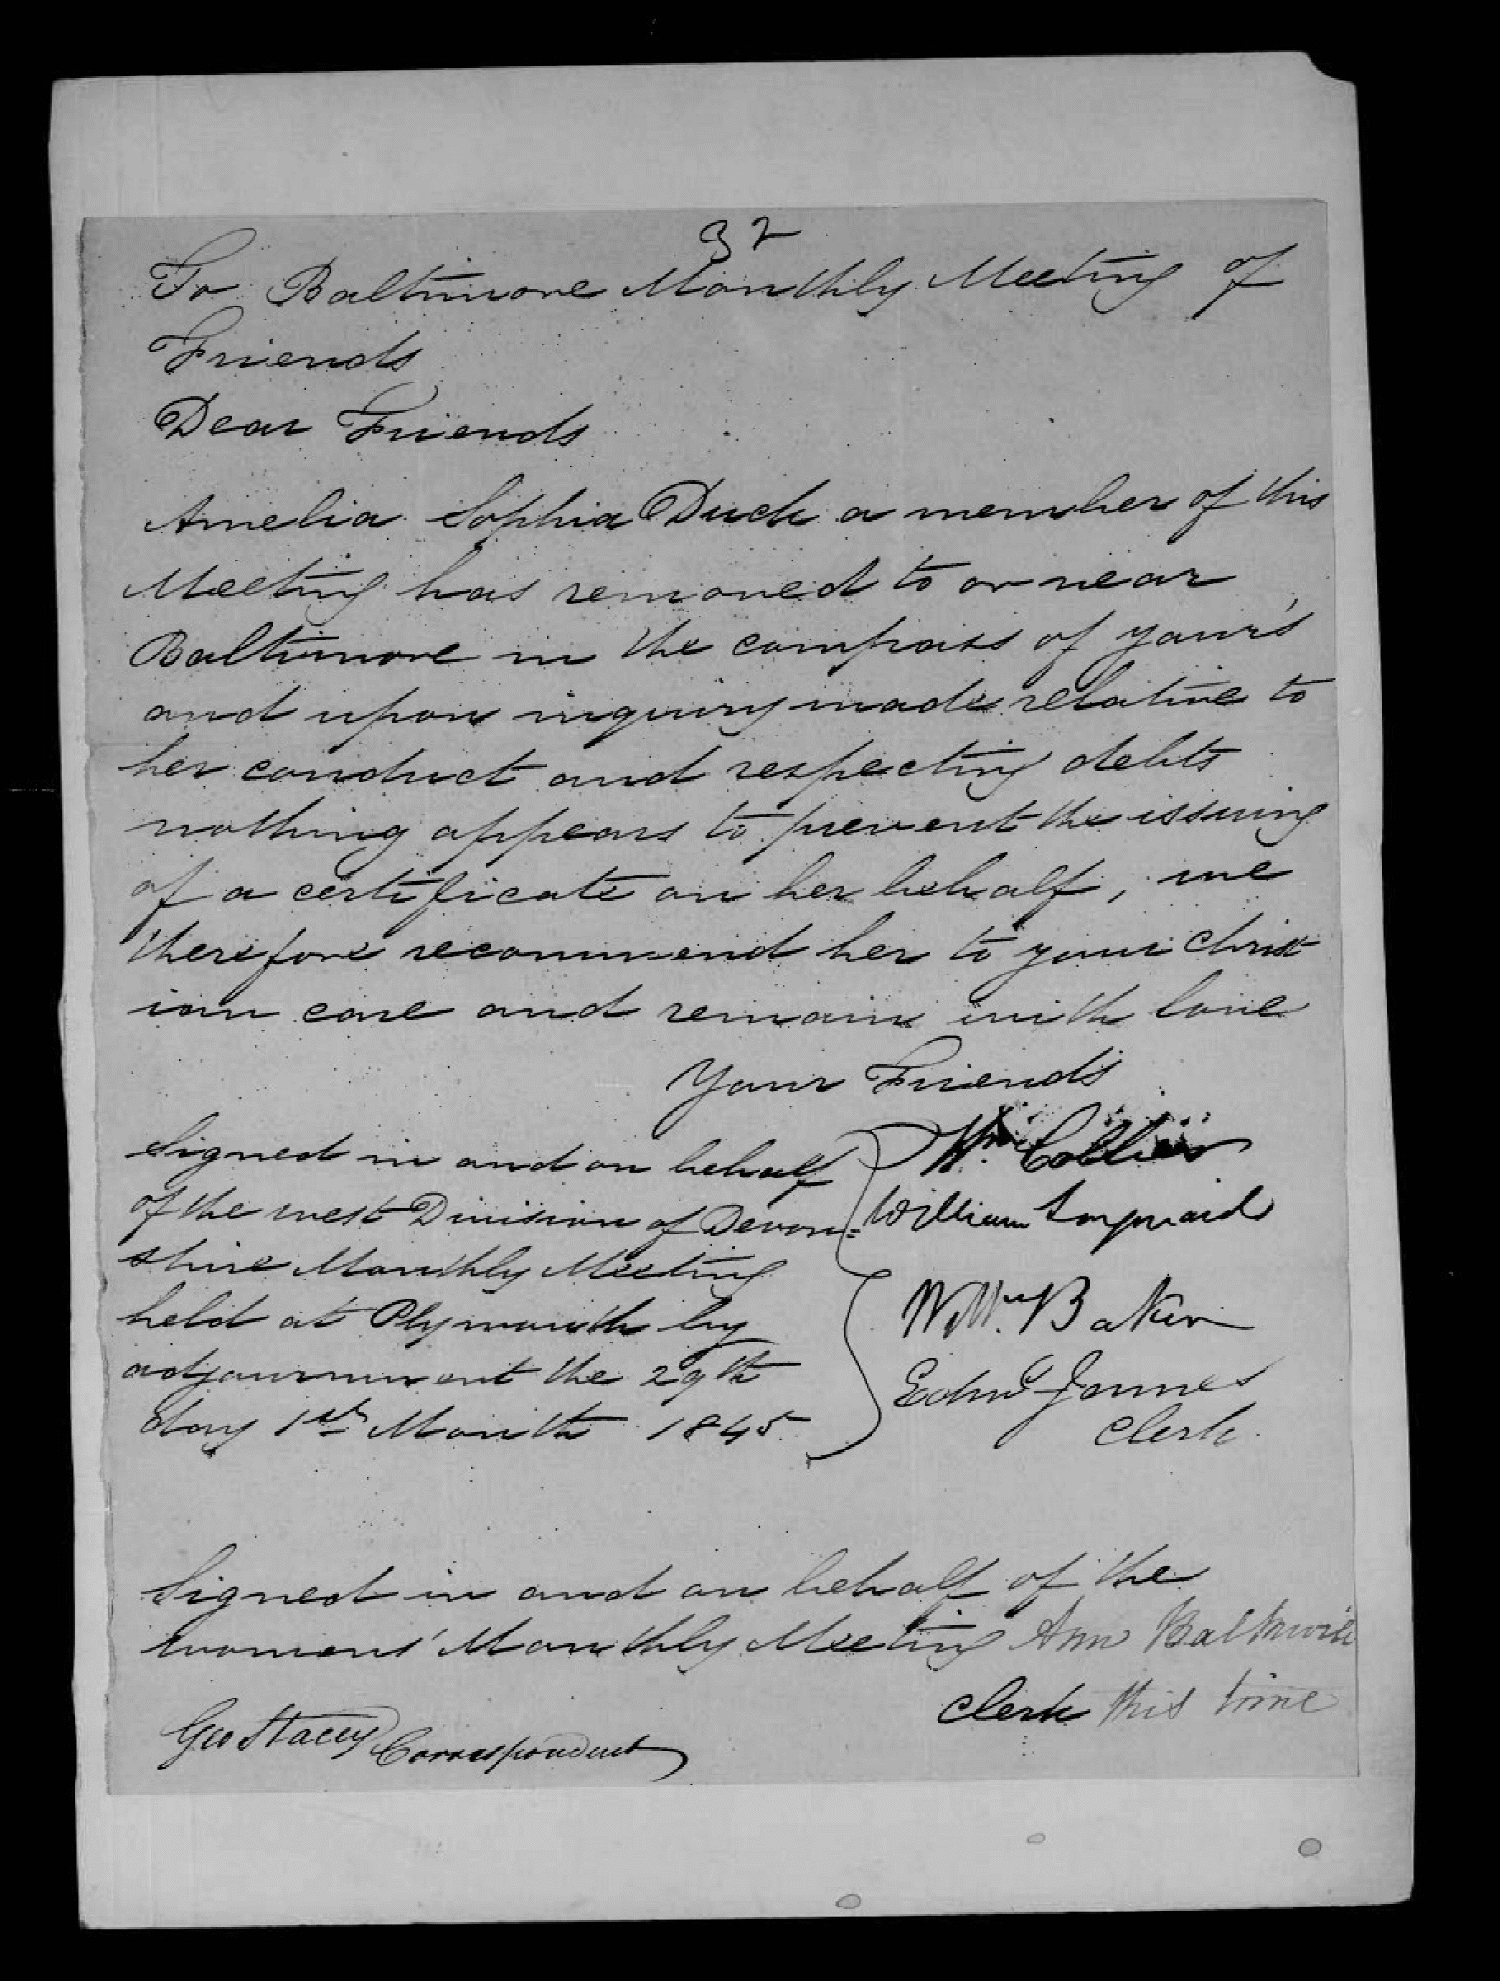 32
To Baltimore Monthly Meeting of
Friends
Dear Friends
Amelia Sophia Duck a member of this
Meeting has removed to or near
Baltimore in the compass of your's
and upon inquiry made relative to
her conduct and respecting debts
nothing appears to prevent the issuing
of a certificate on her behalf, we
therefore recommend her to your Christ
ian care and remain with love
Your Friends
Signed in and on behalf
of the west Division of Devon=
shire Monthly Meeting
held at Plymouth by
adjournment the 29th
day 1st Month 1845
Wm Collier
William
Willm. Baker
Edmd James
Clerk
Signed in and on behalf of the
womens' Monthly Meeting Ann
Clerk this time
Geo Stacey Correspondent